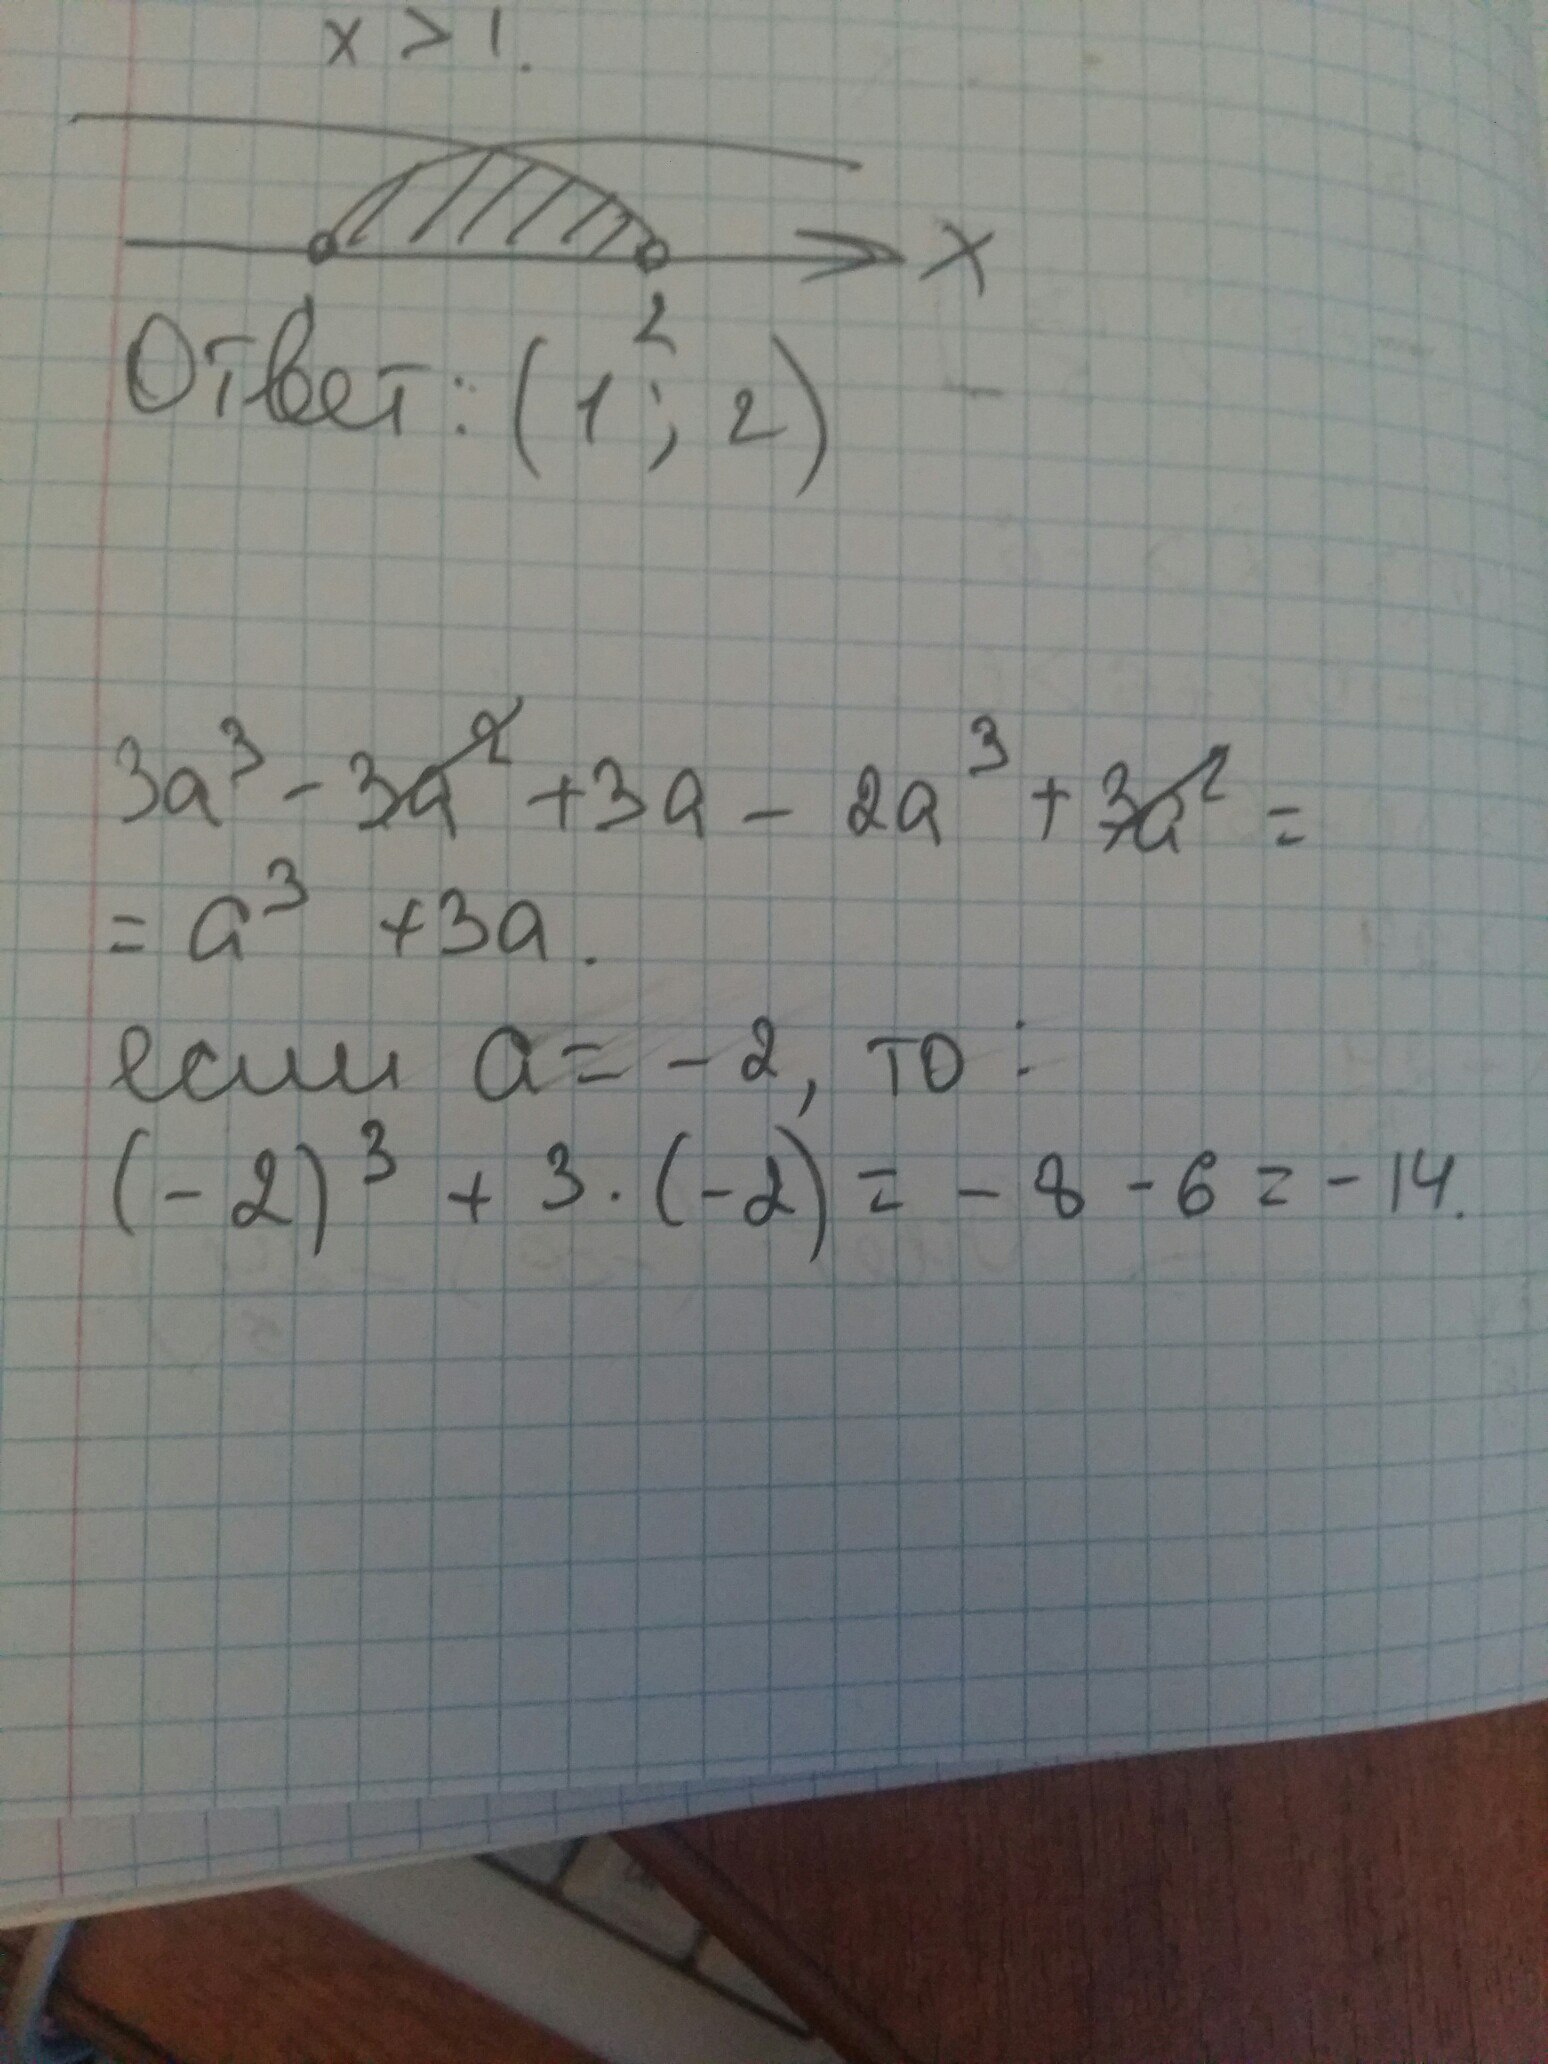 x > 1.
x
2
Ответ: (1; 2)
3a³ - 3a² + 3a - 2a³ + 3a² =
= a³ + 3a.
если a = -2, то:
(-2)³ + 3·(-2) = -8 - 6 = -14.